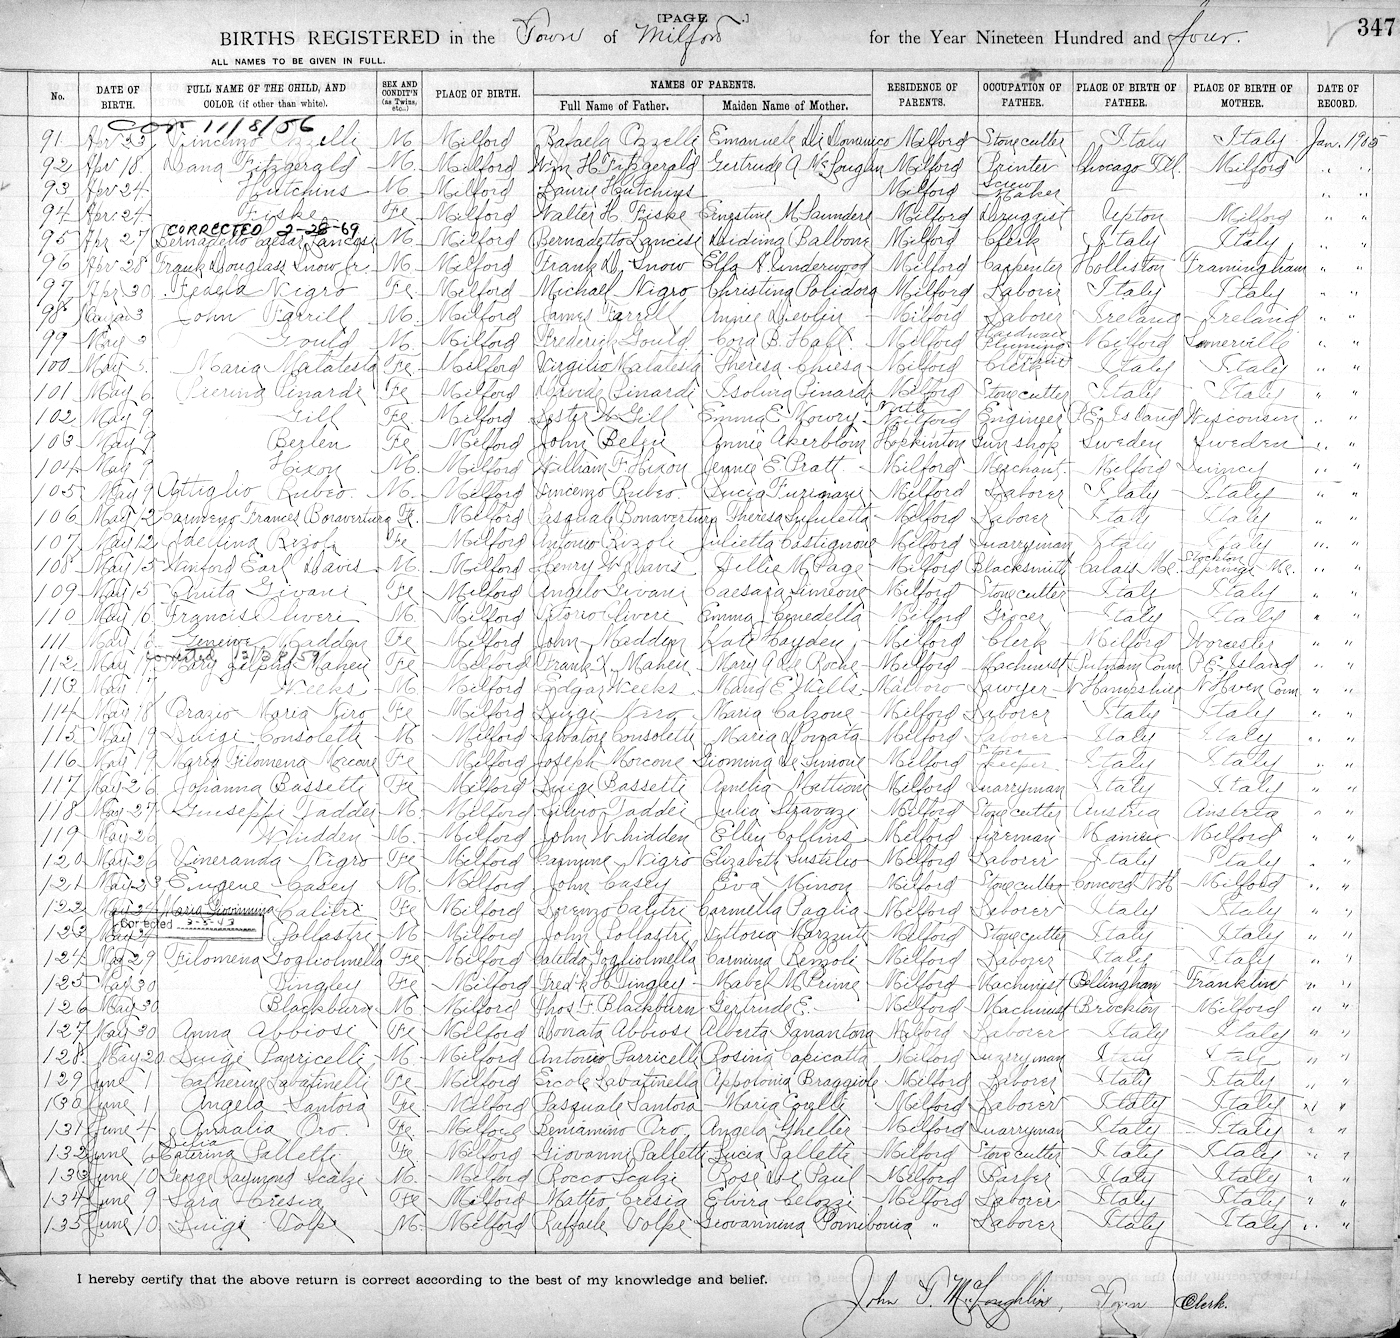 [PAGE .]
347
BIRTHS REGISTERED in the Town of Milford for the Year Nineteen Hundred and four.
ALL NAMES TO BE GIVEN IN FULL.
No. DATE OF BIRTH. FULL NAME OF THE CHILD, AND COLOR (if other than white). SEX AND CONDIT'N (as Twins, etc..) PLACE OF BIRTH. NAMES OF PARENTS. Full Name of Father. Maiden Name of Mother. RESIDENCE OF PARENTS. OCCUPATION OF FATHER. PLACE OF BIRTH OF FATHER. PLACE OF BIRTH OF MOTHER. DATE OF RECORD.
Cor 11/8/56
91 Apr 23 Vincenzo Ozzelli M. Milford Rafaela Ozzelli Emanuela Di Domenico Milford Stonecutter Italy Italy Jan. 1905
92 Apr 18 Dana Fitzgerald M. Milford Wm H Fitzgerald Gertrude A Milford Printer Chicago Ill. Milford " "
93 Apr 24 Hutchins M Milford Laurie Hutchins Milford Screw Maker " "
94 Apr 24 Fiske Fe Milford Walter H Fiske Ernestine M Saunders Milford Druggist Upton Milford " "
CORRECTED 2-28-69
95 Apr 27 Bernadetto Cesar Lancisi M. Milford Bernadetto Lancisi Balboni Milford Clerk Italy Italy " "
96 Apr 28 Frank Douglass Snow Jr. M. Milford Frank D. Snow Underwood Milford Carpenter Holliston Framingham " "
97 Apr 30 Nigro Fe Milford Michael Nigro Christina Polidora Milford Laborer Italy Italy " "
98 May 3 John Farrill M. Milford James Farrill Annie Devlin Milford Laborer Ireland Ireland " "
99 May 3 Gould M. Milford Frederick Gould Cora B. Hall Milford Milford Somerville " "
100 May 5 Maria Malatesta Fe Milford Virgilio Malatesta Theresa Chiesa Milford Italy Italy " "
101 May 6 Pierina Pinardi Fe Milford Pinardi Isolina Pinardi Milford Stonecutter Italy Italy " "
102 May 9 Gill Fe Milford Lester W Gill Emma E Mowry North Milford Engineer P.E. Island Wisconsin " "
103 May 9 Berlen Fe Milford John Annie Akerblom Hopkinton Gun shop Sweden Sweden " "
104 May 9 Hixon M. Milford William F Hixon Jennie E. Pratt Milford Merchant Milford Quincy " "
105 May 9 Attiglio Rubeo M. Milford Vincenzo Rubeo Lucia Milford Laborer Italy Italy " "
106 May 12 Carmeno Frances Bonaventura Fe. Milford Pasquale Bonaventura Theresa Milford Laborer Italy Italy " "
107 May 12 Adelina Rizoli Fe Milford Antonio Rizoli Julietta Castignoni Milford Quarryman Italy Italy " "
108 May 15 Winford Earl Davis M. Milford Henry W Davis Lillie M Page Milford Blacksmith Calais Me. Stockton Springs Me. " "
109 May 15 Anita Givani Fe Milford Angelo Givani Caesara Simeone Milford Stonecutter Italy Italy " "
110 May 16 Francis Oliveri M. Milford Vitorio Oliveri Emma Cenedella Milford Grocer Italy Italy " "
111 May Genieve Madden Fe Milford John Madden Kate Hayden Milford Clerk Milford Worcester " "
Corrected
112 May Mahen Fe Milford Frank X. Mahen Mary A De Roche Milford Machinist Putnam Conn P.E. Island " "
113 May Weeks M. Milford Edgar Weeks Maud E Wells Marlboro Lawyer N Hampshire N Haven Conn " "
114 May 18 Orazio Maria Niro Fe Milford Luigi Niro Maria Calzone Milford Laborer Italy Italy " "
115 May 19 Luigi Consoletti M Milford Salvatore Consoletti Maria Donata Milford Laborer Italy Italy " "
116 May 19 Maria Filomena Morcone Fe Milford Joseph Morcone De Simone Milford Keeper Italy Italy " "
117 May 26 Johanna Bassetti Fe Milford Luigi Bassetti Amelia Mattioni Milford Quarryman Italy Italy " "
118 May 27 Giuseppi Taddei M. Milford Silvio Taddei Julia Milford Stonecutter Austria Austria " "
119 May 26 Whidden M. Milford John Whidden Ellen Collins Milford Fireman Milford " "
120 May 26 Vineranda Nigro Fe Milford Carmine Nigro Elizabeth Milford Laborer Italy Italy " "
121 May 28 Eugene Casey M. Milford John Casey Eva Minon Milford Stonecutter Concord N H Milford " "
122 May 24 Maria Giovannina Calitri Fe Milford Lorenzo Calitri Carmella Paglia Milford Laborer Italy Italy " "
Corrected 3-5-43
123 May 24 Pollastri M Milford John Pollastri Vittoria Milford Stonecutter Italy Italy " "
124 May 29 Filomena Togliolmella Fe Milford Togliolmella Carmina Milford Laborer Italy Italy " "
125 May 30 Tingley Fe Milford Fred k H Tingley Mabel M Prime Milford Machinist Bellingham Franklin " "
126 May 30 Blackburn M. Milford Thos F Blackburn Gertrude E. Milford Machinist Brockton Milford " "
127 May 30 Anna Abbiosi Fe Milford Donato Abbiosi Alberta Milford Laborer Italy Italy " "
128 May 20 Luigi Parricelli M Milford Antonio Parricelli Rosina Capicatta Milford Quarryman Italy Italy " "
129 June 1 Catherine Sabatinelli Fe Milford Ercole Sabatinella Appolonia Braggiole Milford Laborer Italy Italy " "
130 June 1 Angela Santora Fe Milford Pasquale Santora Maria Covelli Milford Laborer Italy Italy " "
131 June 4 Amalia Oro. Fe. Milford Beniamino Oro Angela Gheller Milford Quarryman Italy Italy " "
132 June 6 Catering Palletti Fe Milford Giovanni Palletti Lucia Pallette Milford Stonecutter Italy Italy " "
133 June 10 George Raymond Scalzi M. Milford Rocco Scalzi Rose Di Paul Milford Barber Italy Italy " "
134 June 9 Sara Cresia Fe Milford Matteo Cresia Elvira Celozzi Milford Laborer Italy Italy " "
135 June 10 Luigi Volpe M. Milford Raffaele Volpe Giovannina Pomibonia " Laborer Italy Italy " "
I hereby certify that the above return is correct according to the best of my knowledge and belief.
John T. McLoughlin, Town Clerk.